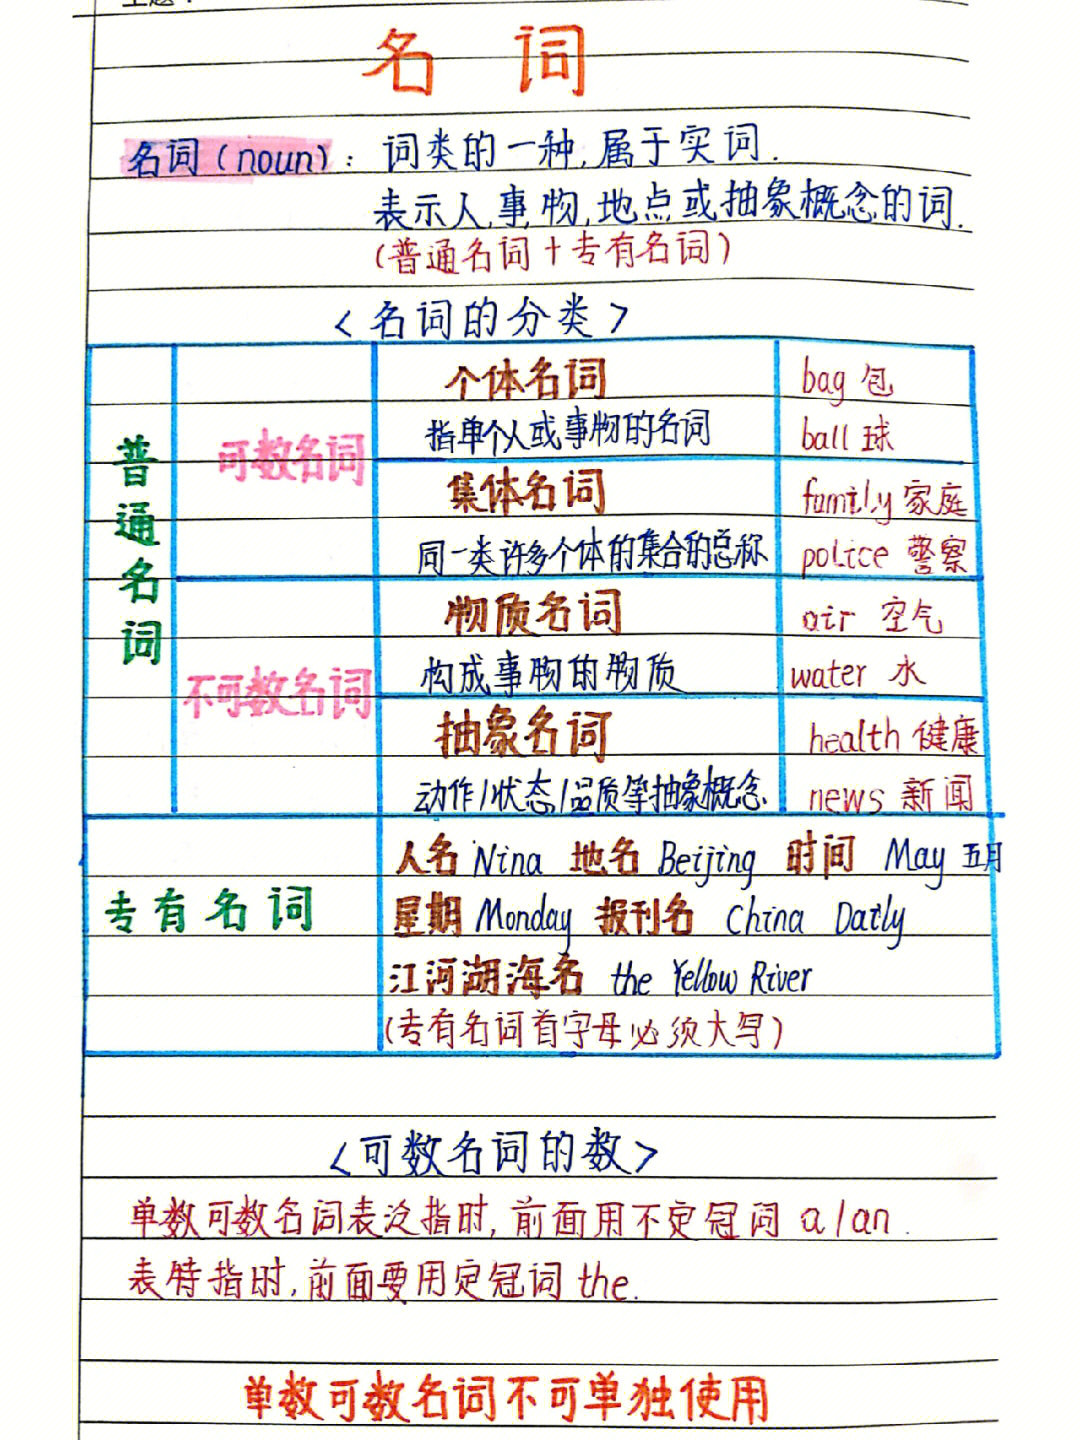 主题：
名 词
名词（noun）：词类的一种,属于实词.
表示人,事,物,地点或抽象概念的词.
(普通名词＋专有名词)
<名词的分类>
普通名词
可数名词
个体名词
指单个人或事物的名词
bag 包
ball 球
集体名词
同一类许多个体的集合的总称
family 家庭
police 警察
不可数名词
物质名词
构成事物的物质
air 空气
water 水
抽象名词
动作/状态/品质等抽象概念.
health 健康
news 新闻
专有名词
人名 Nina 地名 Beijing 时间 May 五月
星期 Monday 报刊名 China Daily
江河湖海名 the Yellow River
(专有名词首字母必须大写)
<可数名词的数>
单数可数名词表泛指时,前面用不定冠词 a/an.
表特指时,前面要用定冠词 the.
单数可数名词不可单独使用